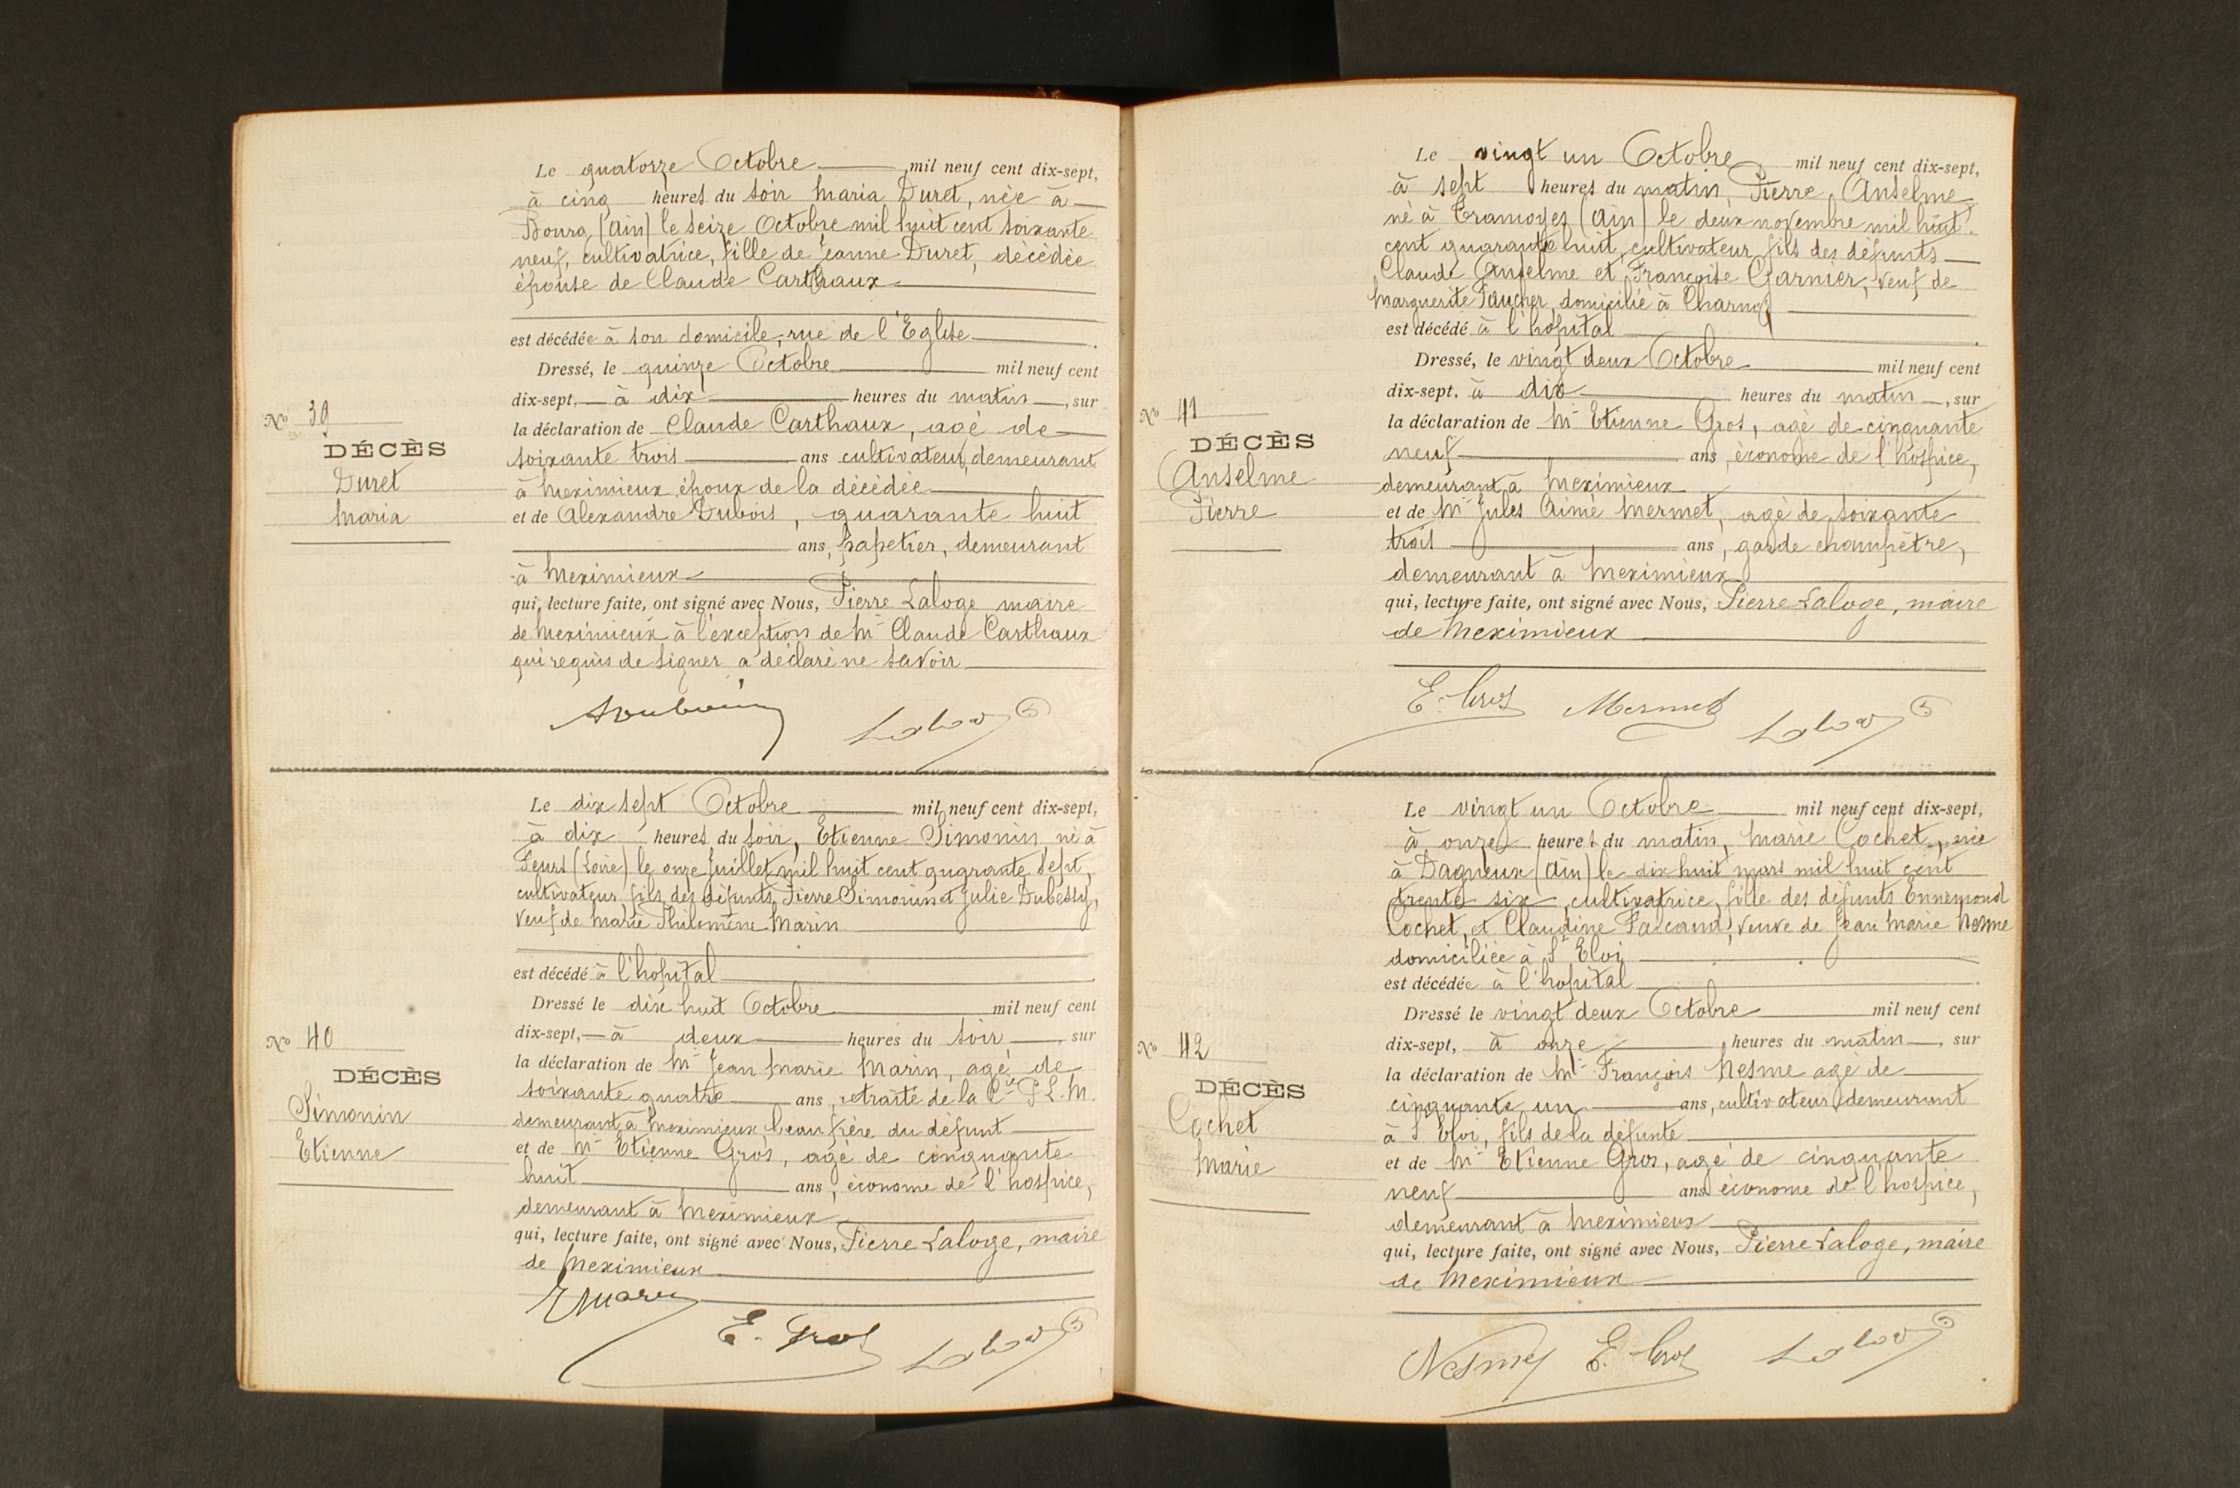 Le quatorze Octobre mil neuf cent dix-sept,
à cinq heures du soir Maria Duret, née à
Bourg (Ain) le seize Octobre mil huit cent soixante
neuf, cultivatrice, fille de Jeanne Duret, décédée
épouse de Claude Carthaux
est décédée à son domicile, rue de l'Eglise
Dressé, le quinze Octobre mil neuf cent
dix-sept, à dix heures du matin, sur
la déclaration de Claude Carthaux, agé de
soixante trois ans cultivateur, demeurant
à Meximieux époux de la décédée
et de Alexandre Dubois, quarante huit
ans, papetier, demeurant
à Meximieux
qui, lecture faite, ont signé avec Nous, Pierre Laloge maire
de Meximieux à l'exception de Mr Claude Carthaux
qui requis de signer a déclaré ne savoir
No 39
DÉCÈS
Duret
Maria
Le dix sept Octobre mil neuf cent dix-sept,
à dix heures du soir, Etienne Simonin, né à
Feurs (Loire) le onze Juillet mil huit cent quarante sept,
cultivateur, fils des défunts Pierre Simonin et Julie Dubessy,
veuf de Marie Philomène Marin
est décédé à l'hopital
Dressé le dix huit Octobre mil neuf cent
dix-sept, à deux heures du soir, sur
la déclaration de Mr Jean Marie Marin, agé de
soixante quatre ans, retraité de la Cie P.L.M.
demeurant à Meximieux beau frère du défunt
et de Mr Etienne Gros, agé de cinquante
huit ans, économe de l'hospice,
demeurant à Meximieux
qui, lecture faite, ont signé avec Nous, Pierre Laloge, maire
de Meximieux
E. Gros
No 40
DÉCÈS
Simonin
Etienne
Le vingt un Octobre mil neuf cent dix-sept,
à sept heures du matin, Pierre Anselme
né à Tramoyes (Ain) le deux novembre mil huit
cent quarante huit, cultivateur, fils des défunts
Claude Anselme et Françoise Garnier, veuf de
Marguerite Faucher, domicilié à Charnoz
est décédé à l'hopital
Dressé, le vingt deux Octobre mil neuf cent
dix-sept, à dix heures du matin, sur
la déclaration de Mr Etienne Gros, agé de cinquante
neuf ans, économe de l'hospice,
demeurant à Meximieux
et de Mr Jules Aimé Mermet, agé de soixante
trois ans, garde champêtre,
demeurant à Meximieux
qui, lecture faite, ont signé avec Nous, Pierre Laloge, maire
de Meximieux
E. Gros Mermet
No 41
DÉCÈS
Anselme
Pierre
Le vingt un Octobre mil neuf cent dix-sept,
à onze heures du matin, Marie Cochet, née
à Dagneux (Ain) le dix huit mars mil huit cent
trente six, cultivatrice, fille des défunts Ennemond
Cochet, et Claudine Falcand, veuve de Jean Marie Nesme
domiciliée à St Eloi
est décédée à l'hopital
Dressé le vingt deux Octobre mil neuf cent
dix-sept, à onze heures du matin, sur
la déclaration de Mr François Nesme agé de
cinquante un ans, cultivateur, demeurant
à St Eloi, fils de la défunte
et de Mr Etienne Gros, agé de cinquante
neuf ans économe de l'hospice,
demeurant à Meximieux
qui, lecture faite, ont signé avec Nous, Pierre Laloge, maire
de Meximieux
Nesme E. Gros
No 42
DÉCÈS
Cochet
Marie